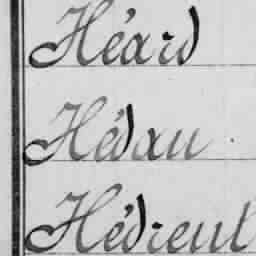 Héard
Hédau
Hédreul